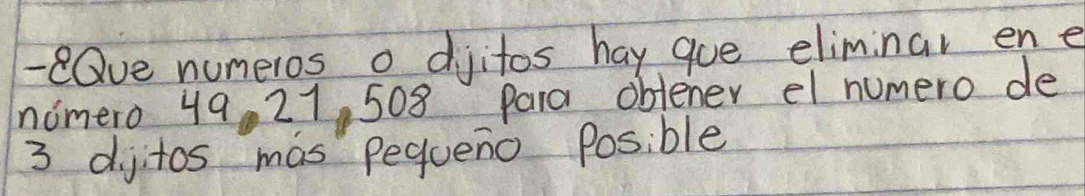 -¿Que numeros o dijitos hay que eliminar en e
número 49,21,508 para obtener el numero de
3 dijitos más pequeño posible